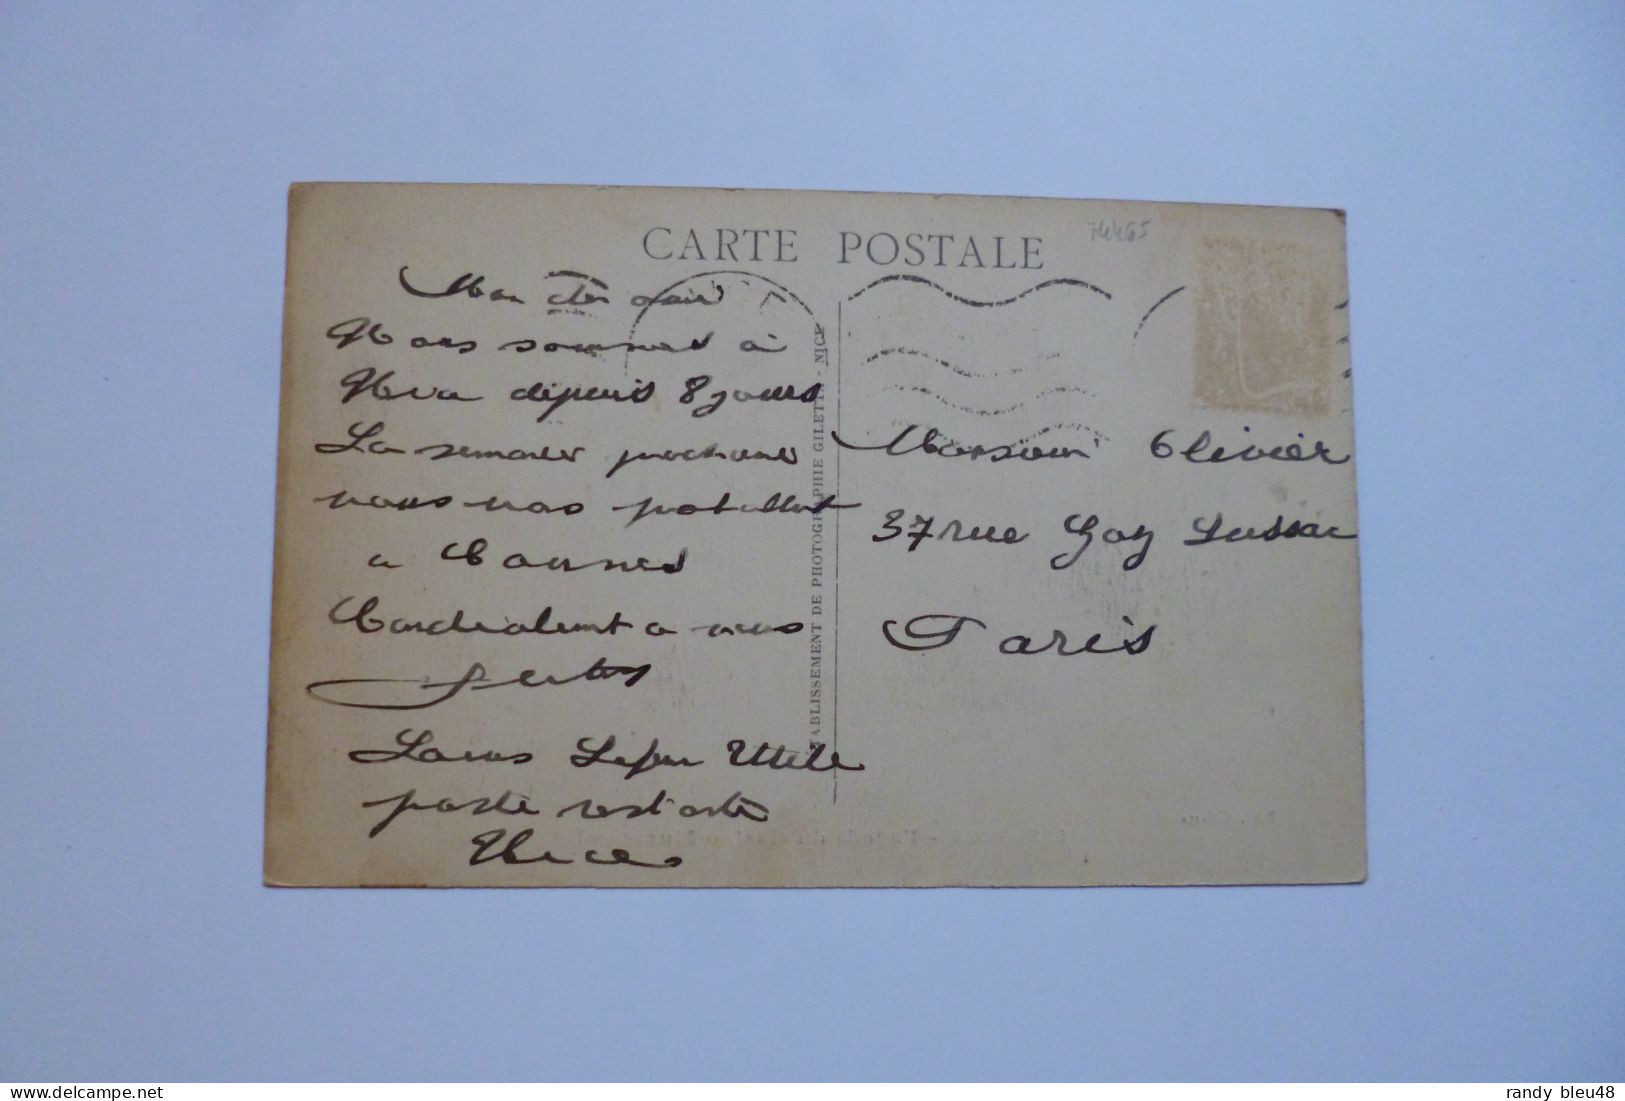 CARTE POSTALE
74465
Mon cher ami
Nous sommes à
depuis 8 jours
La semaine prochaine
nous nos
a Cannes
Cordialement a vous
Louis
poste restante
Nice
ETABLISSEMENT DE PHOTOGRAPHIE GILETTA - NICE
Monsieur Olivier
37 rue Gay Lussac
Paris
randy bleu48